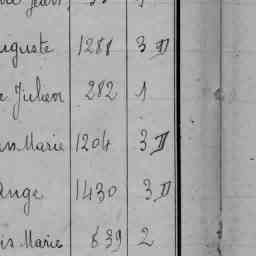 uguste 1288 3 D
e Julien 282 1
an Marie 1204 3 D
Ange 1430 3 D
is Marie 839 2